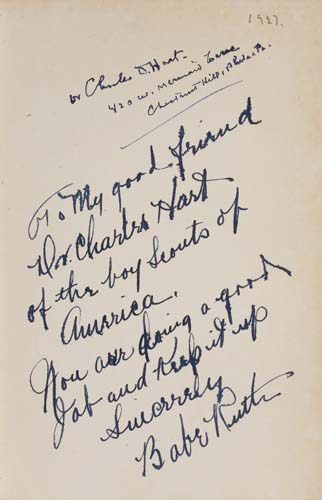 1927.
Dr Charles D. Hart.
420 W. Mermaid Lane
Chestnut Hill, Phila Pa.
To My good friend
Dr. Charles Hart
of the boy Scouts of
America.
You are doing a good
Job and Keep it up
Sincerely
Babe Ruth